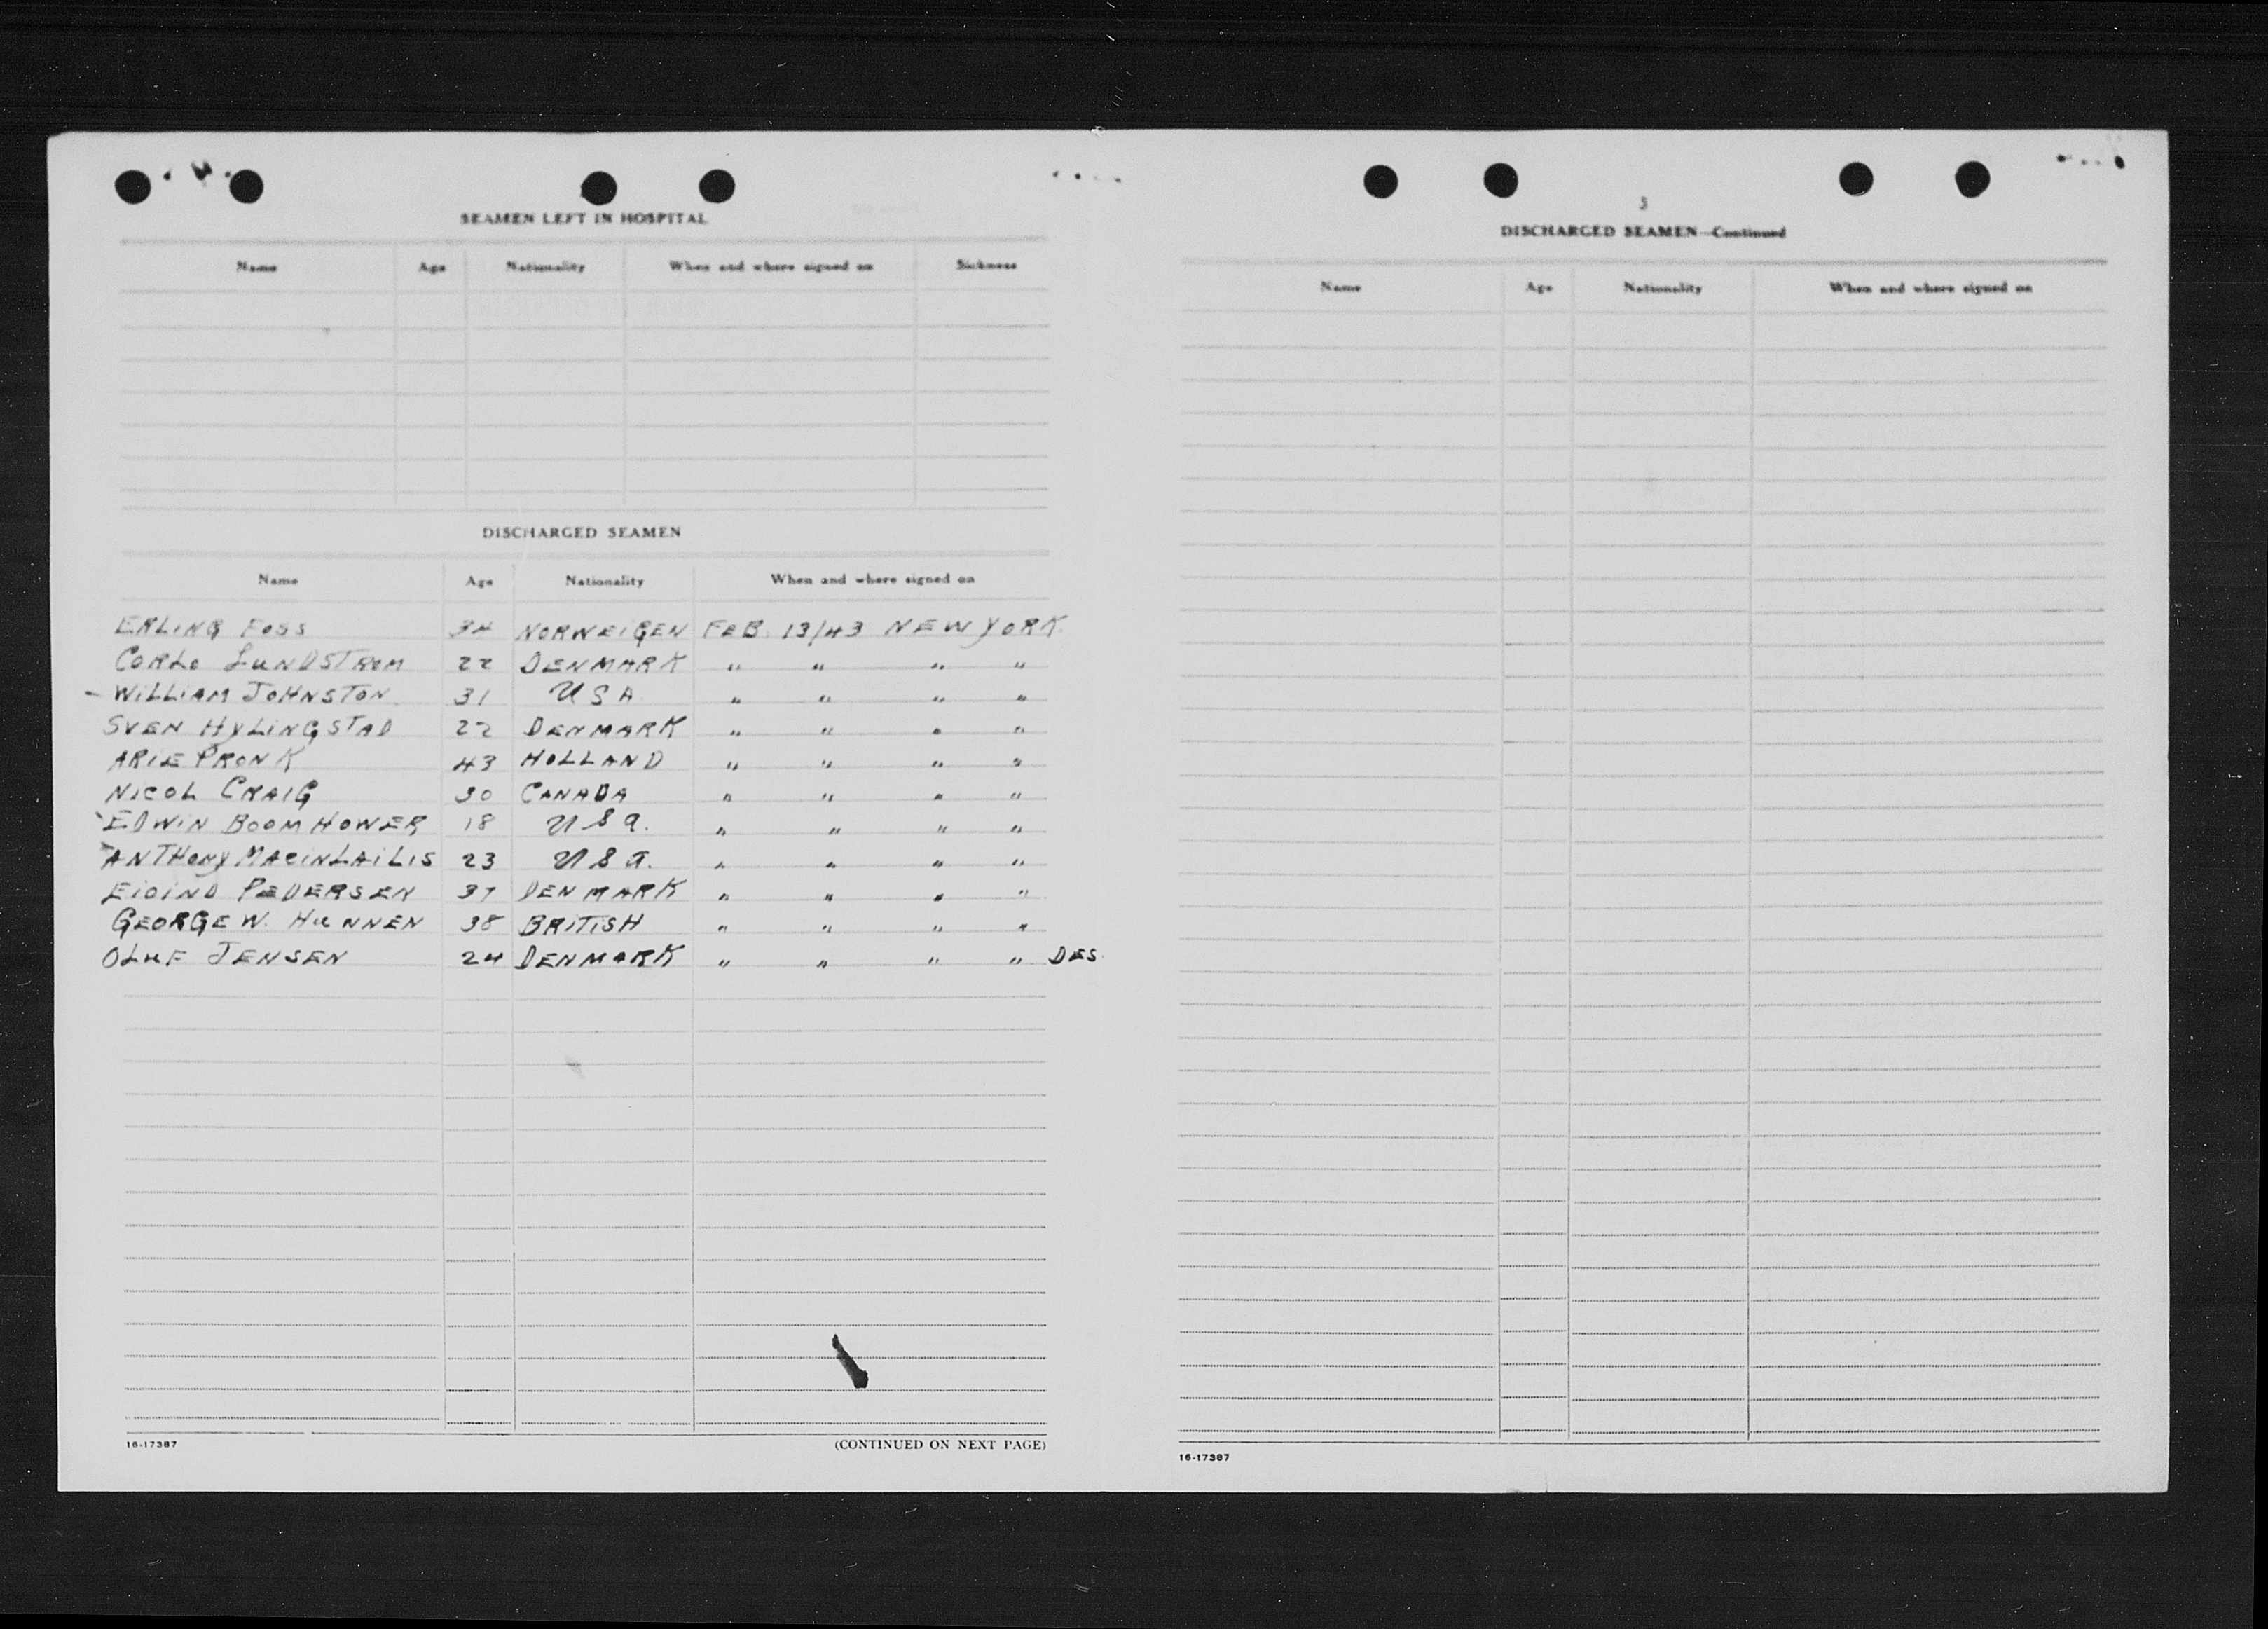 SEAMEN LEFT IN HOSPITAL
Name Age Nationality When and where signed on Sickness
DISCHARGED SEAMEN
Name Age Nationality When and where signed on
ERLING FOSS 34 NORWEIGEN FEB. 13/43 NEW YORK.
CORLO LUNDSTROM 22 DENMARK " " " "
- WILLIAM JOHNSTON 31 USA " " " "
SVEN HYLINGSTAD 22 DENMARK " " " "
ARIE PRONK 43 HOLLAND " " " "
NICOL CRAIG 30 CANADA " " " "
EDWIN BOOMHOWER 18 USA. " " " "
ANTHONY 23 USA. " " " "
PEDERSEN 37 DENMARK " " " "
GEORGE W. HUNNEN 38 BRITISH " " " "
OLUF JENSEN 24 DENMARK " " " " DES.
16-17387 (CONTINUED ON NEXT PAGE)
3
DISCHARGED SEAMEN—Continued
Name Age Nationality When and where signed on
16-17387